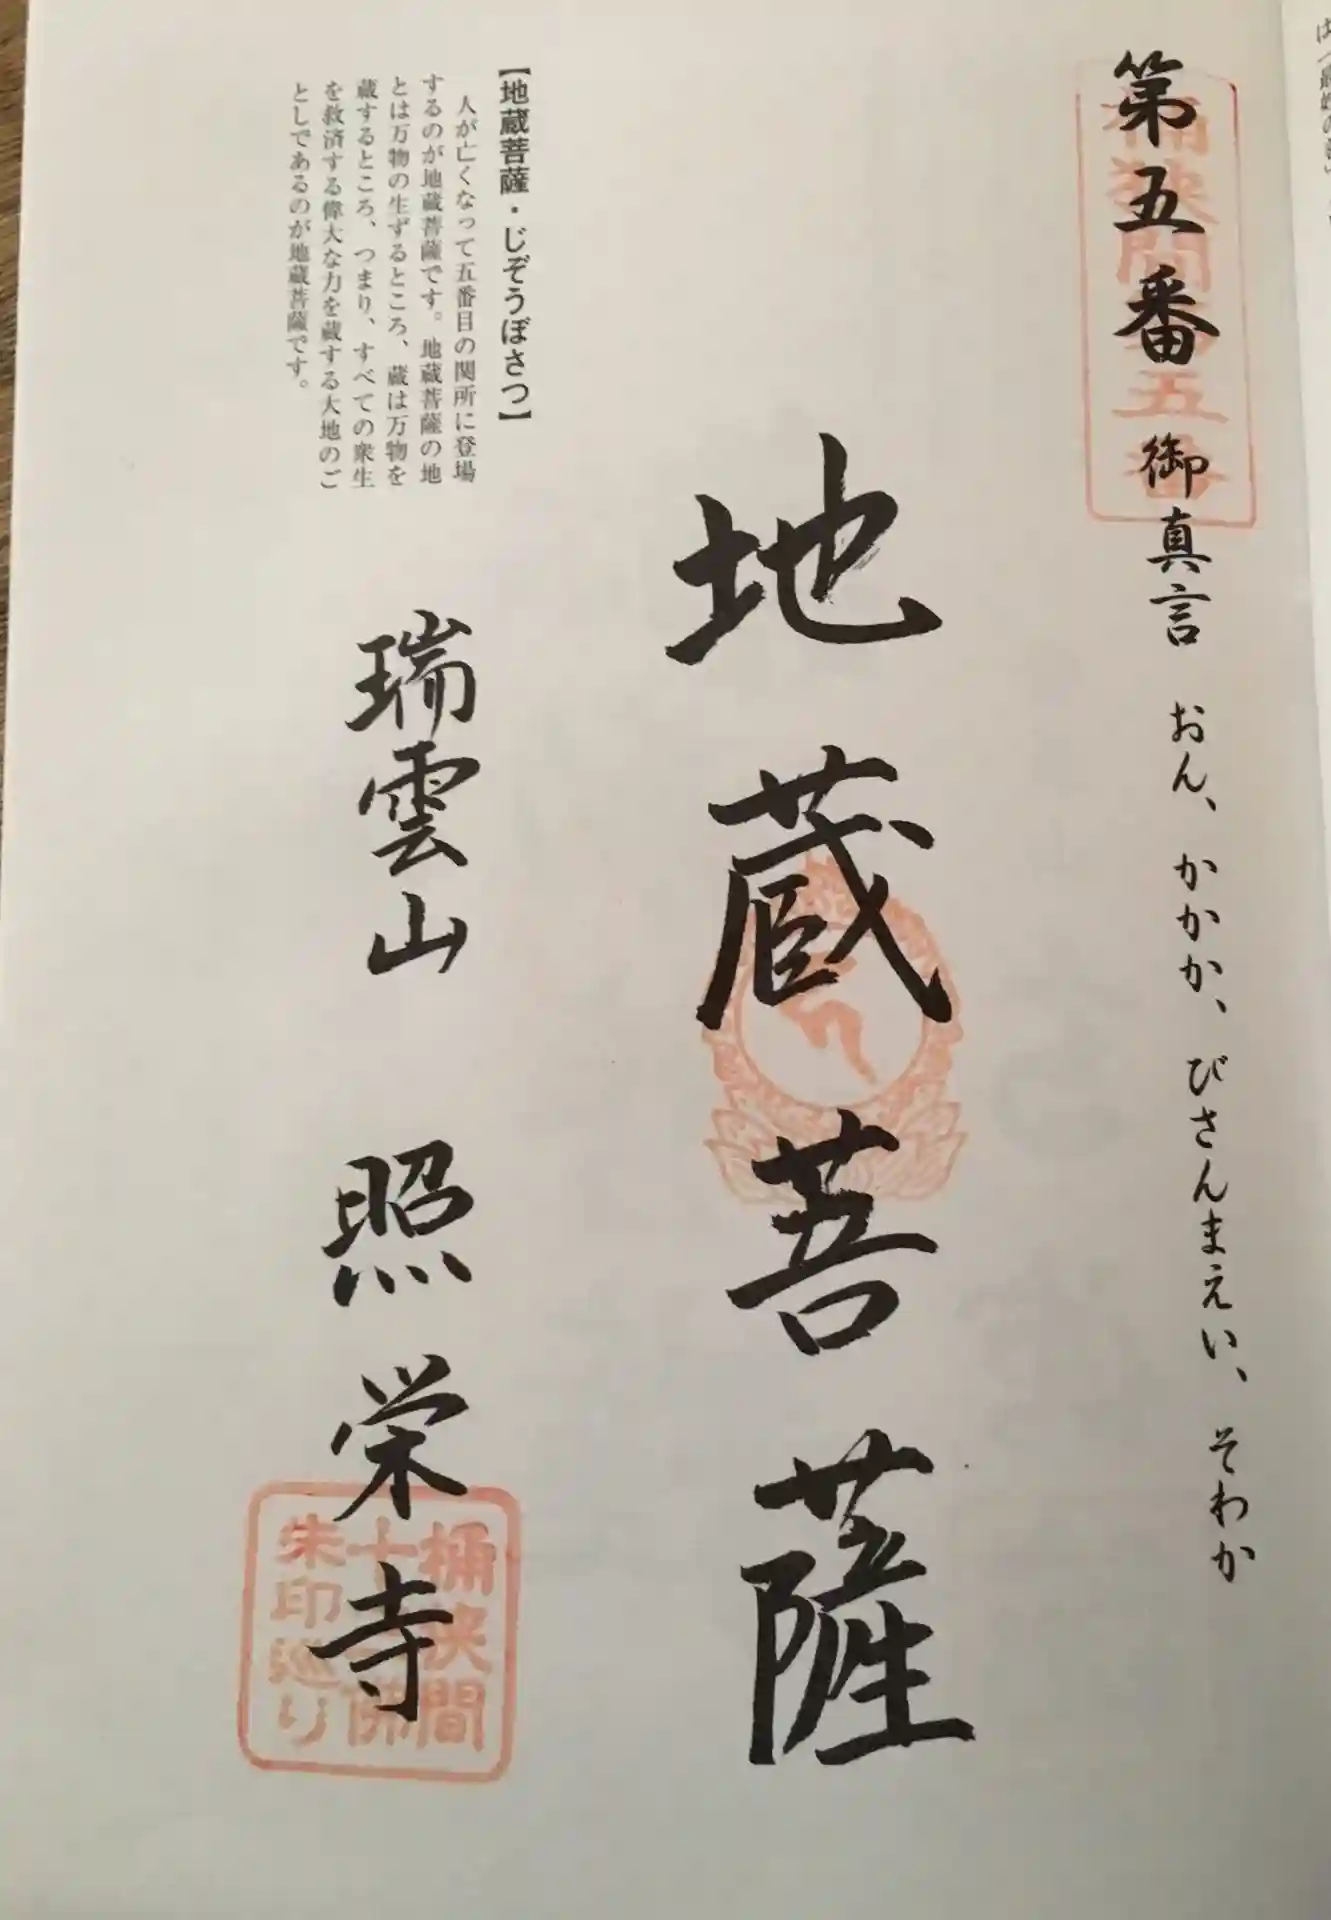 第五番 御真言 おん、かかか、びさんまえい、そわか
桶狭間第五番
地蔵菩薩
【地蔵菩薩・じぞうぼさつ】
人が亡くなって五番目の関所に登場
するのが地蔵菩薩です。地蔵菩薩の地
とは万物の生ずるところ、蔵は万物を
蔵するところ、つまり、すべての衆生
を救済する偉大な力を蔵する大地のご
としであるのが地蔵菩薩です。
瑞雲山 照栄寺
桶狭間
十三佛
朱印巡り